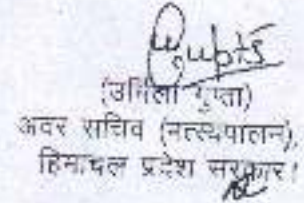 Gupta
(उर्मिला गुप्ता)
अवर सचिव (मत्स्यपालन),
हिमाचल प्रदेश सरकार।